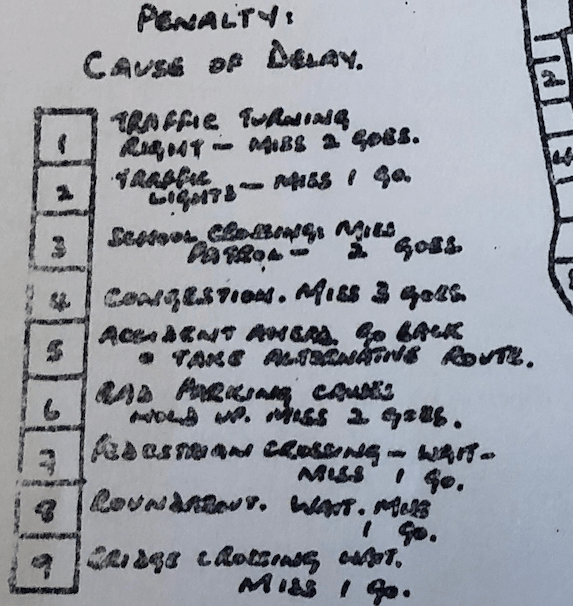 PENALTY:
CAUSE OF DELAY.
1 TRAFFIC TURNING
RIGHT - MISS 2 GOES.
2 TRAFFIC
LIGHTS - MISS 1 GO.
3 SCHOOL CROSSING: MISS
PATROL - 2 GOES.
4 CONGESTION. MISS 3 GOES.
5 ACCIDENT AHEAD. GO BACK
& TAKE ALTERNATIVE ROUTE.
6 BAD PARKING CAUSES
HOLD UP. MISS 2 GOES.
7 PEDESTRIAN CROSSING - WAIT -
MISS 1 GO.
8 ROUNDABOUT. WAIT. MISS
1 GO.
9 BRIDGE CROSSING WAIT.
MISS 1 GO.
2
4